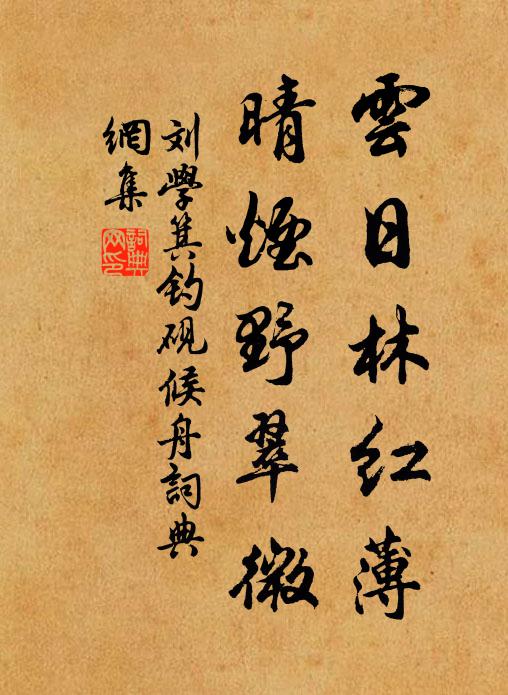 雲日林紅薄
晴煙野翠微
刘學箕钓砚候舟詞典
網集
詞典網印